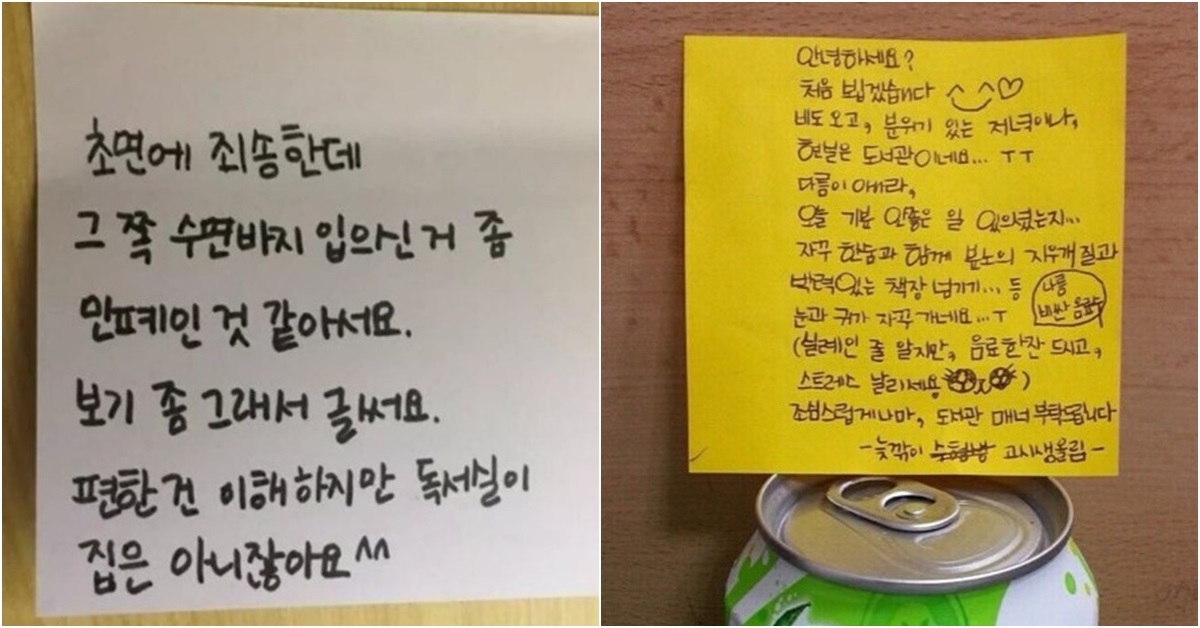 초면에 죄송한데
그 쪽 수면바지 입으신거 좀
민폐인 것 같아서요.
보기 좀 그래서 글써요.
편한건 이해하지만 독서실이
집은 아니잖아요^^
안녕하세요?
처음 뵙겠습니다 ^_^♡
비도 오고, 분위기 있는 저녁이나,
현실은 도서관이네요... ㅜㅜ
다름이 아니라,
오늘 기분 안좋은 일 있으셨는지...
자꾸 한숨과 함께 분노의 지우개질과
박력있는 책장 넘기기... 등
나름
비싼 음료수
눈과 귀가 자꾹 가네요...ㅜ
(실례인 줄 알지만, 음료한잔 드시고,
스트레스 날리세용)
조심스럽게나마, 도서관 매너 부탁드립니다
-늦깎이 수험생 고시생올림-